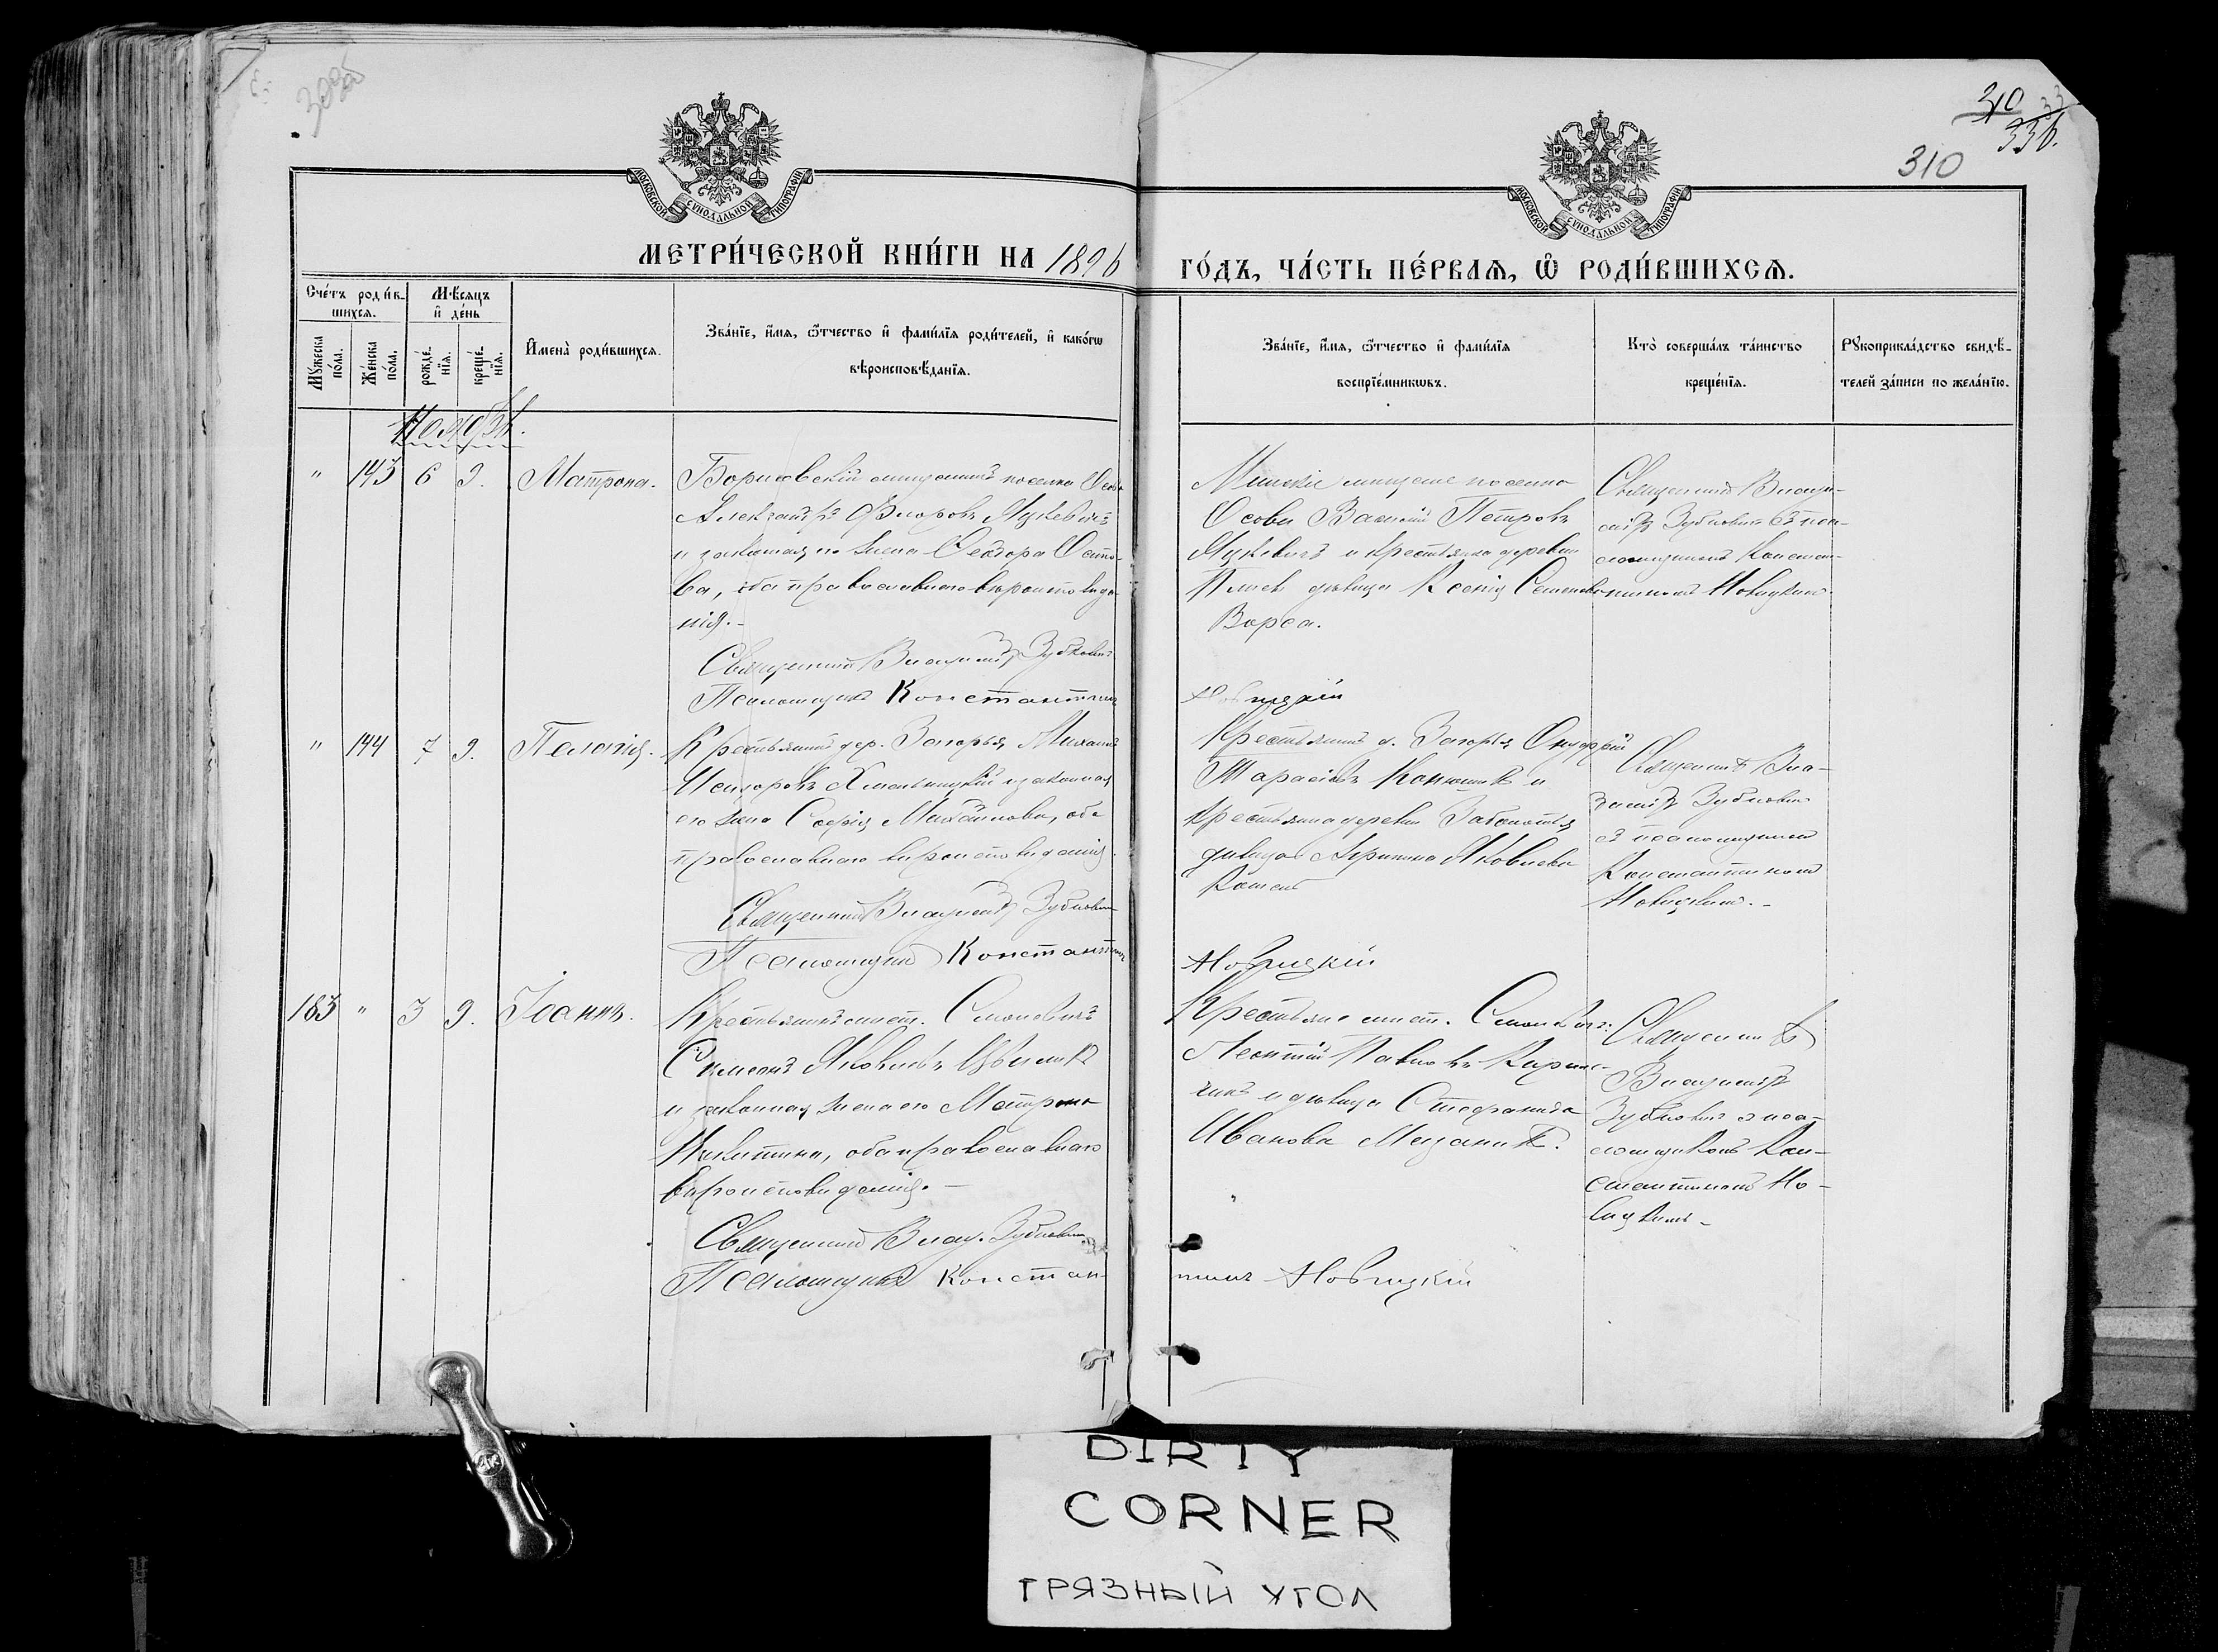 310
336.
310
МОСКОВСКОЙ СѴНОДАЛЬНОЙ ТИПОГРАФІИ
МОСКОВСКОЙ СѴНОДАЛЬНОЙ ТИПОГРАФІИ
МЕТРИ́ЧЕСКОЙ КНИ́ГИ НА 1896 ГО́ДЪ, ЧА́СТЬ ПЕ́РВАѦ, Ѽ РОДИ́ВШИХСѦ.
Сче́тъ роди́в-
шихся.
Мѣ́сяцъ
и҆ де́нь
Мꙋ́жеска
по́ла.
Же́нска
по́ла.
рожде́-
нїя.
креще́-
нїя.
И҆мена̀ роди́вшихся.
Зва́нїе, и҆́мя, ѻ҆́тчество и҆ фами́лїя роди́телей, и҆ како́гѡ
вѣроисповѣ́данїя.
Зва́нїе, и҆́мя, ѻ҆́тчество и҆ фами́лїя
воспрїе́мникѡвъ.
Кто̀ соверша́лъ та́инство
креще́нїя.
Рꙋкоприкла́дство свидѣ́-
телей за́писи по жела́нїю.
Ноябрь.
" 143 6 9. Матрона.
Борисовскій мещанинъ поселка Осова
Александръ Флоровъ Мукевичъ
и законная его жена Феодора
ва, оба православнаго вероисповеда-
нія.-
Священникъ Владиміръ Зубковичъ
Псаломщикъ Константинъ
Новицкій
Минскіе мещане поселка
Осовы Василій Петровъ
Мукевичъ и крестьянка деревни
девица Ксенія Семенова
Ворса.
Священникъ Влади-
міръ Зубковичъ съ пса-
ломщикомъ Констан-
тиномъ Новицкимъ
" 144 7 9. Пелагія.
Крестьянинъ дер. Загорья Михаилъ
Исидоровъ Хмельницкій и законная
его жена Софія Михайлова, оба
православнаго вероисповеданія.
Священникъ Владиміръ Зубковичъ
Псаломщикъ Константинъ
Новицкій
Крестьянинъ д. Загорья Онуфрій
Тарасіевъ и
крестьянка деревни Заболотья
девица Агрипина Яковлева
Священникъ Вла-
диміръ Зубковичъ
съ псаломщикомъ
Константиномъ
Новицкимъ.-
183 " 3 9. Іоаннъ.
Крестьянинъ мест. Смолевичъ
Симеонъ Яковлевъ
и законная жена его Матрона
Никитина, оба православнаго
вероисповеданія.-
Священникъ Влад. Зубковичъ
Псаломщикъ Констан-
тинъ Новицкій
Крестьяне мест. Смолевичъ:
Леонтій Павловъ
и девица Стефанида
Иванова
Священникъ
Владиміръ
Зубковичъ съ пса-
ломщикомъ Кон-
стантиномъ Но-
вицкимъ-
DIRTY
CORNER
ГРЯЗНЫЙ УГОЛ